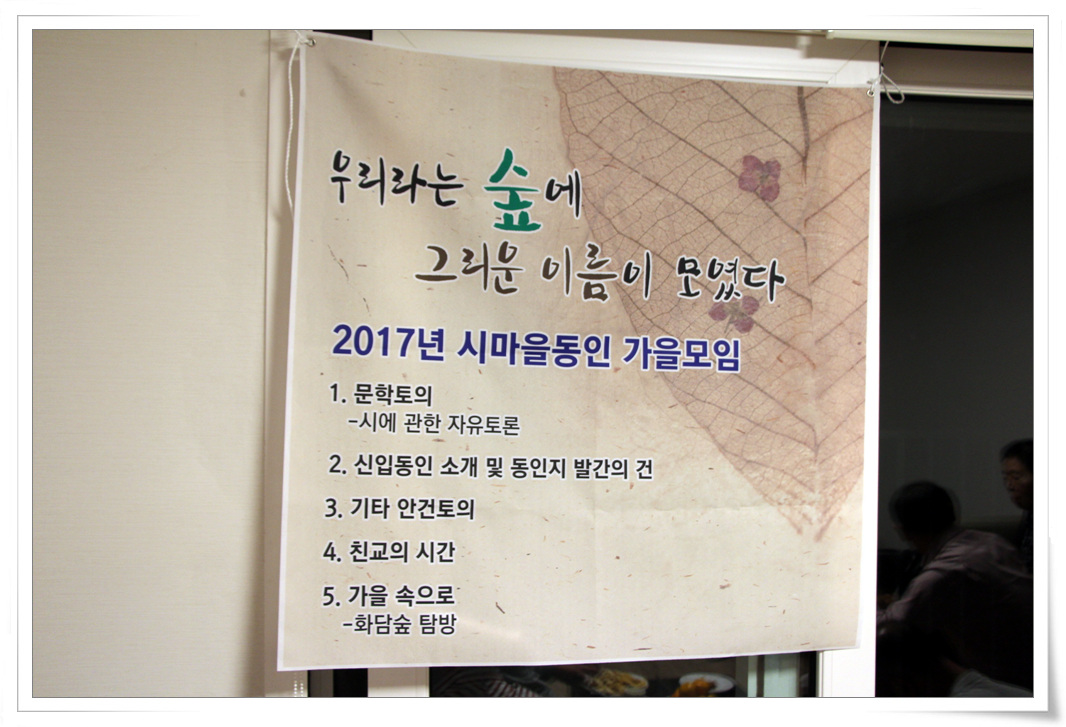 우리라는 숲에
그리운 이름이 모였다
2017년 시마을동인 가을모임
1. 문학토의
-시에 관한 자유토론
2. 신입동인 소개 및 동인지 발간의 건
3. 기타 안건토의
4. 친교의 시간
5. 가을 속으로
-화담숲 탐방